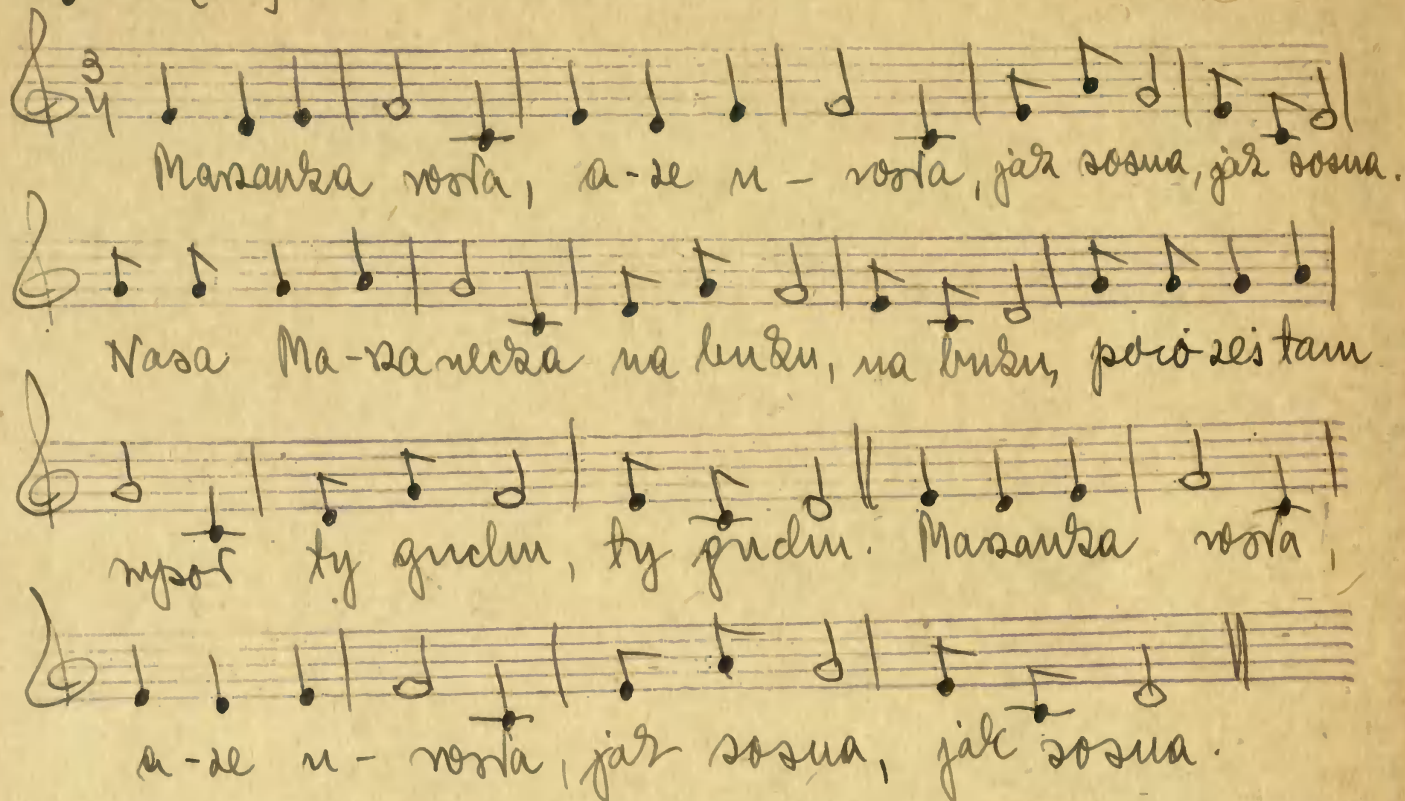 3
4
Mazanka rosła, a-ze u-rosła, jak sosna, jak sosna.
Nasa Ma-zanecka na buku, na buku, pocióześ tam
wysoł ty guchu, ty guchu. Mazanka rosła,
a-ze u-rosła, jak sosna, jak sosna.